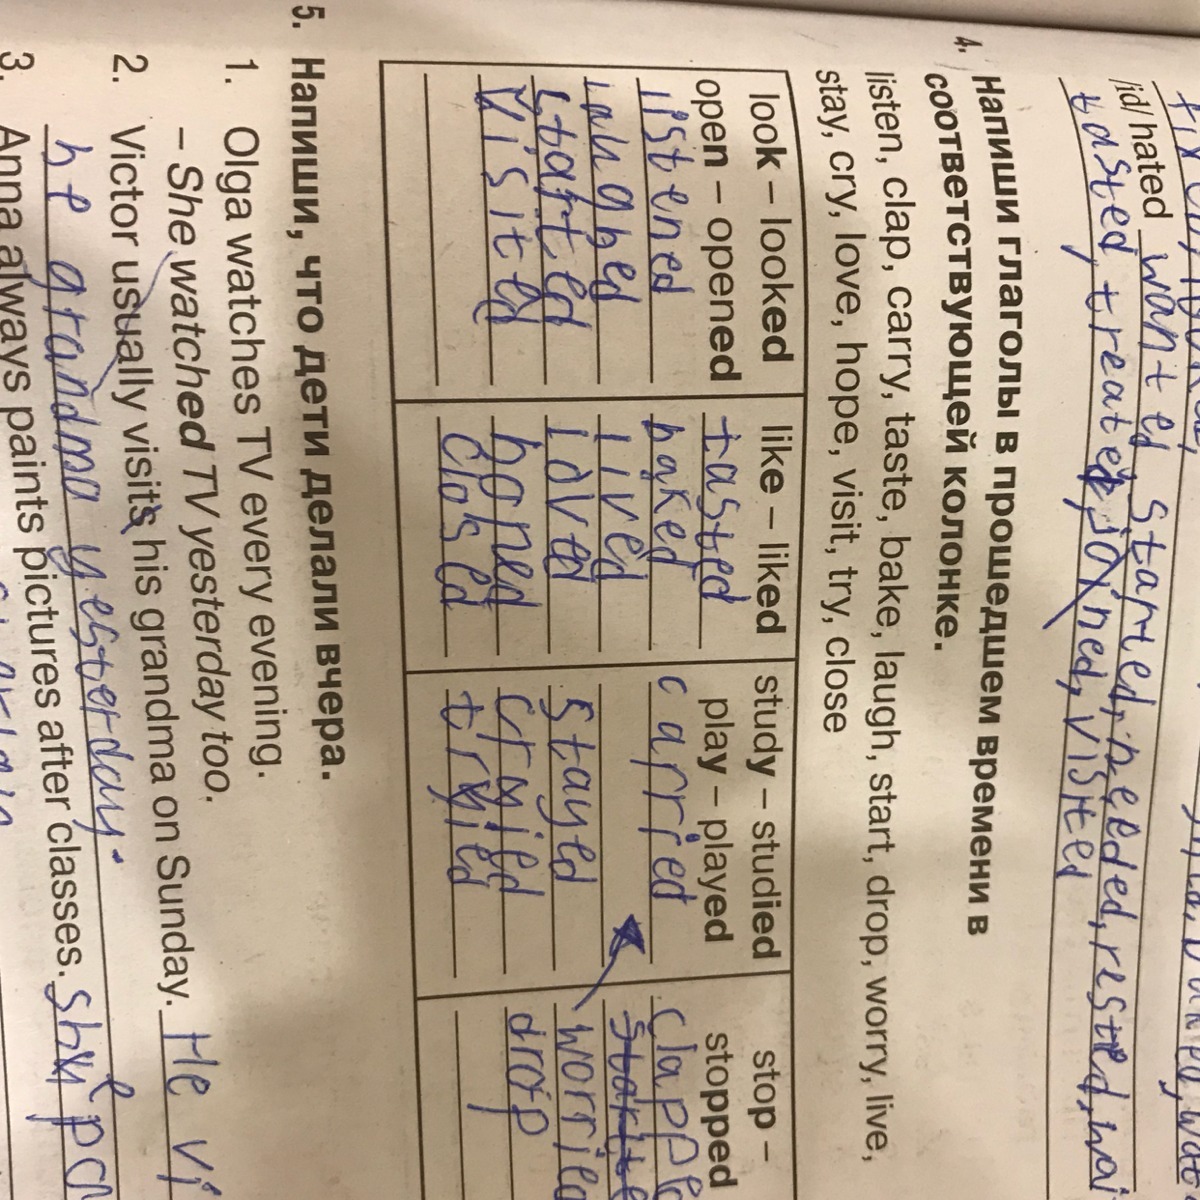 /id/ hated wanted, started, needed, rested,
tasted, treated, joined, visited
4. Напиши глаголы в прошедшем времени в
соответствующей колонке.
listen, clap, carry, taste, bake, laugh, start, drop, worry, live,
stay, cry, love, hope, visit, try, close
look – looked
open – opened
listened
laughed
started
visited
like – liked
tasted
baked
lived
loved
hoped
closed
study – studied
play – played
carried
stayed
cryied
tryied
stop –
stopped
drop
5. Напиши, что дети делали вчера.
1. Olga watches TV every evening.
– She watched TV yesterday too.
2. Victor usually visits his grandma on Sunday. He
he grandma yesterday.
3. Anna always paints pictures after classes. She